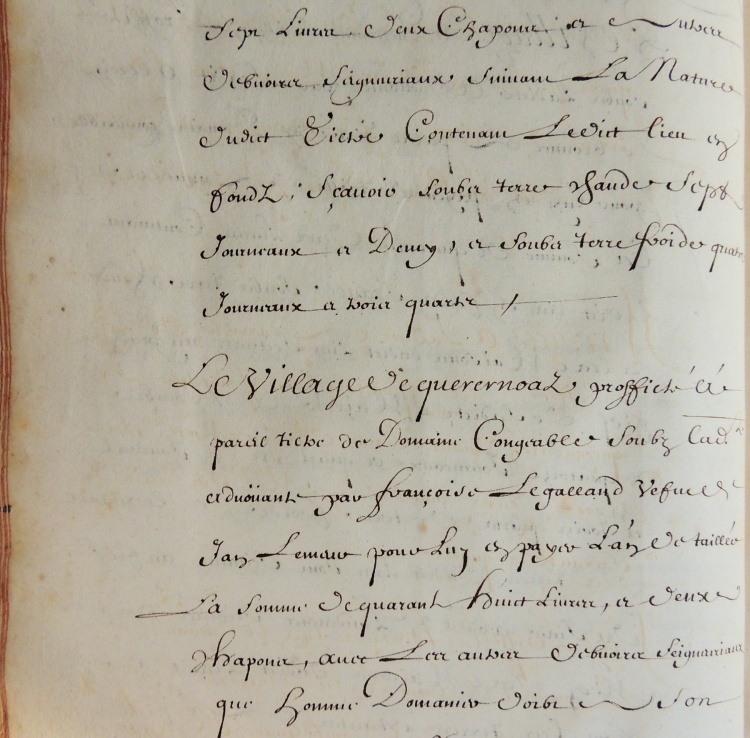 Sept Livres Deux Chapons et Autres
Debvoires Seigneuriaux Suivant La Nature
Dudict Tictre Contenant Ledict lieu en
fondz, Sçavoir Soubz terre chaude Sept
Journeaux et Demy, et Soubz terre froide quatre
Journeaux et trois quarter
Le Village de querernoaz profficté à
pareil tictre de Domaine Congeable Soubz lad.
advouante par françoise Legalland Vefve de
Jan Lemeur pour Luy en payer L'an De taillée
La Somme de quarant huict Livres, et deux
Chapons, avec Les autres Debvoires Seigneuriaux
que homme Domanier doibt Son